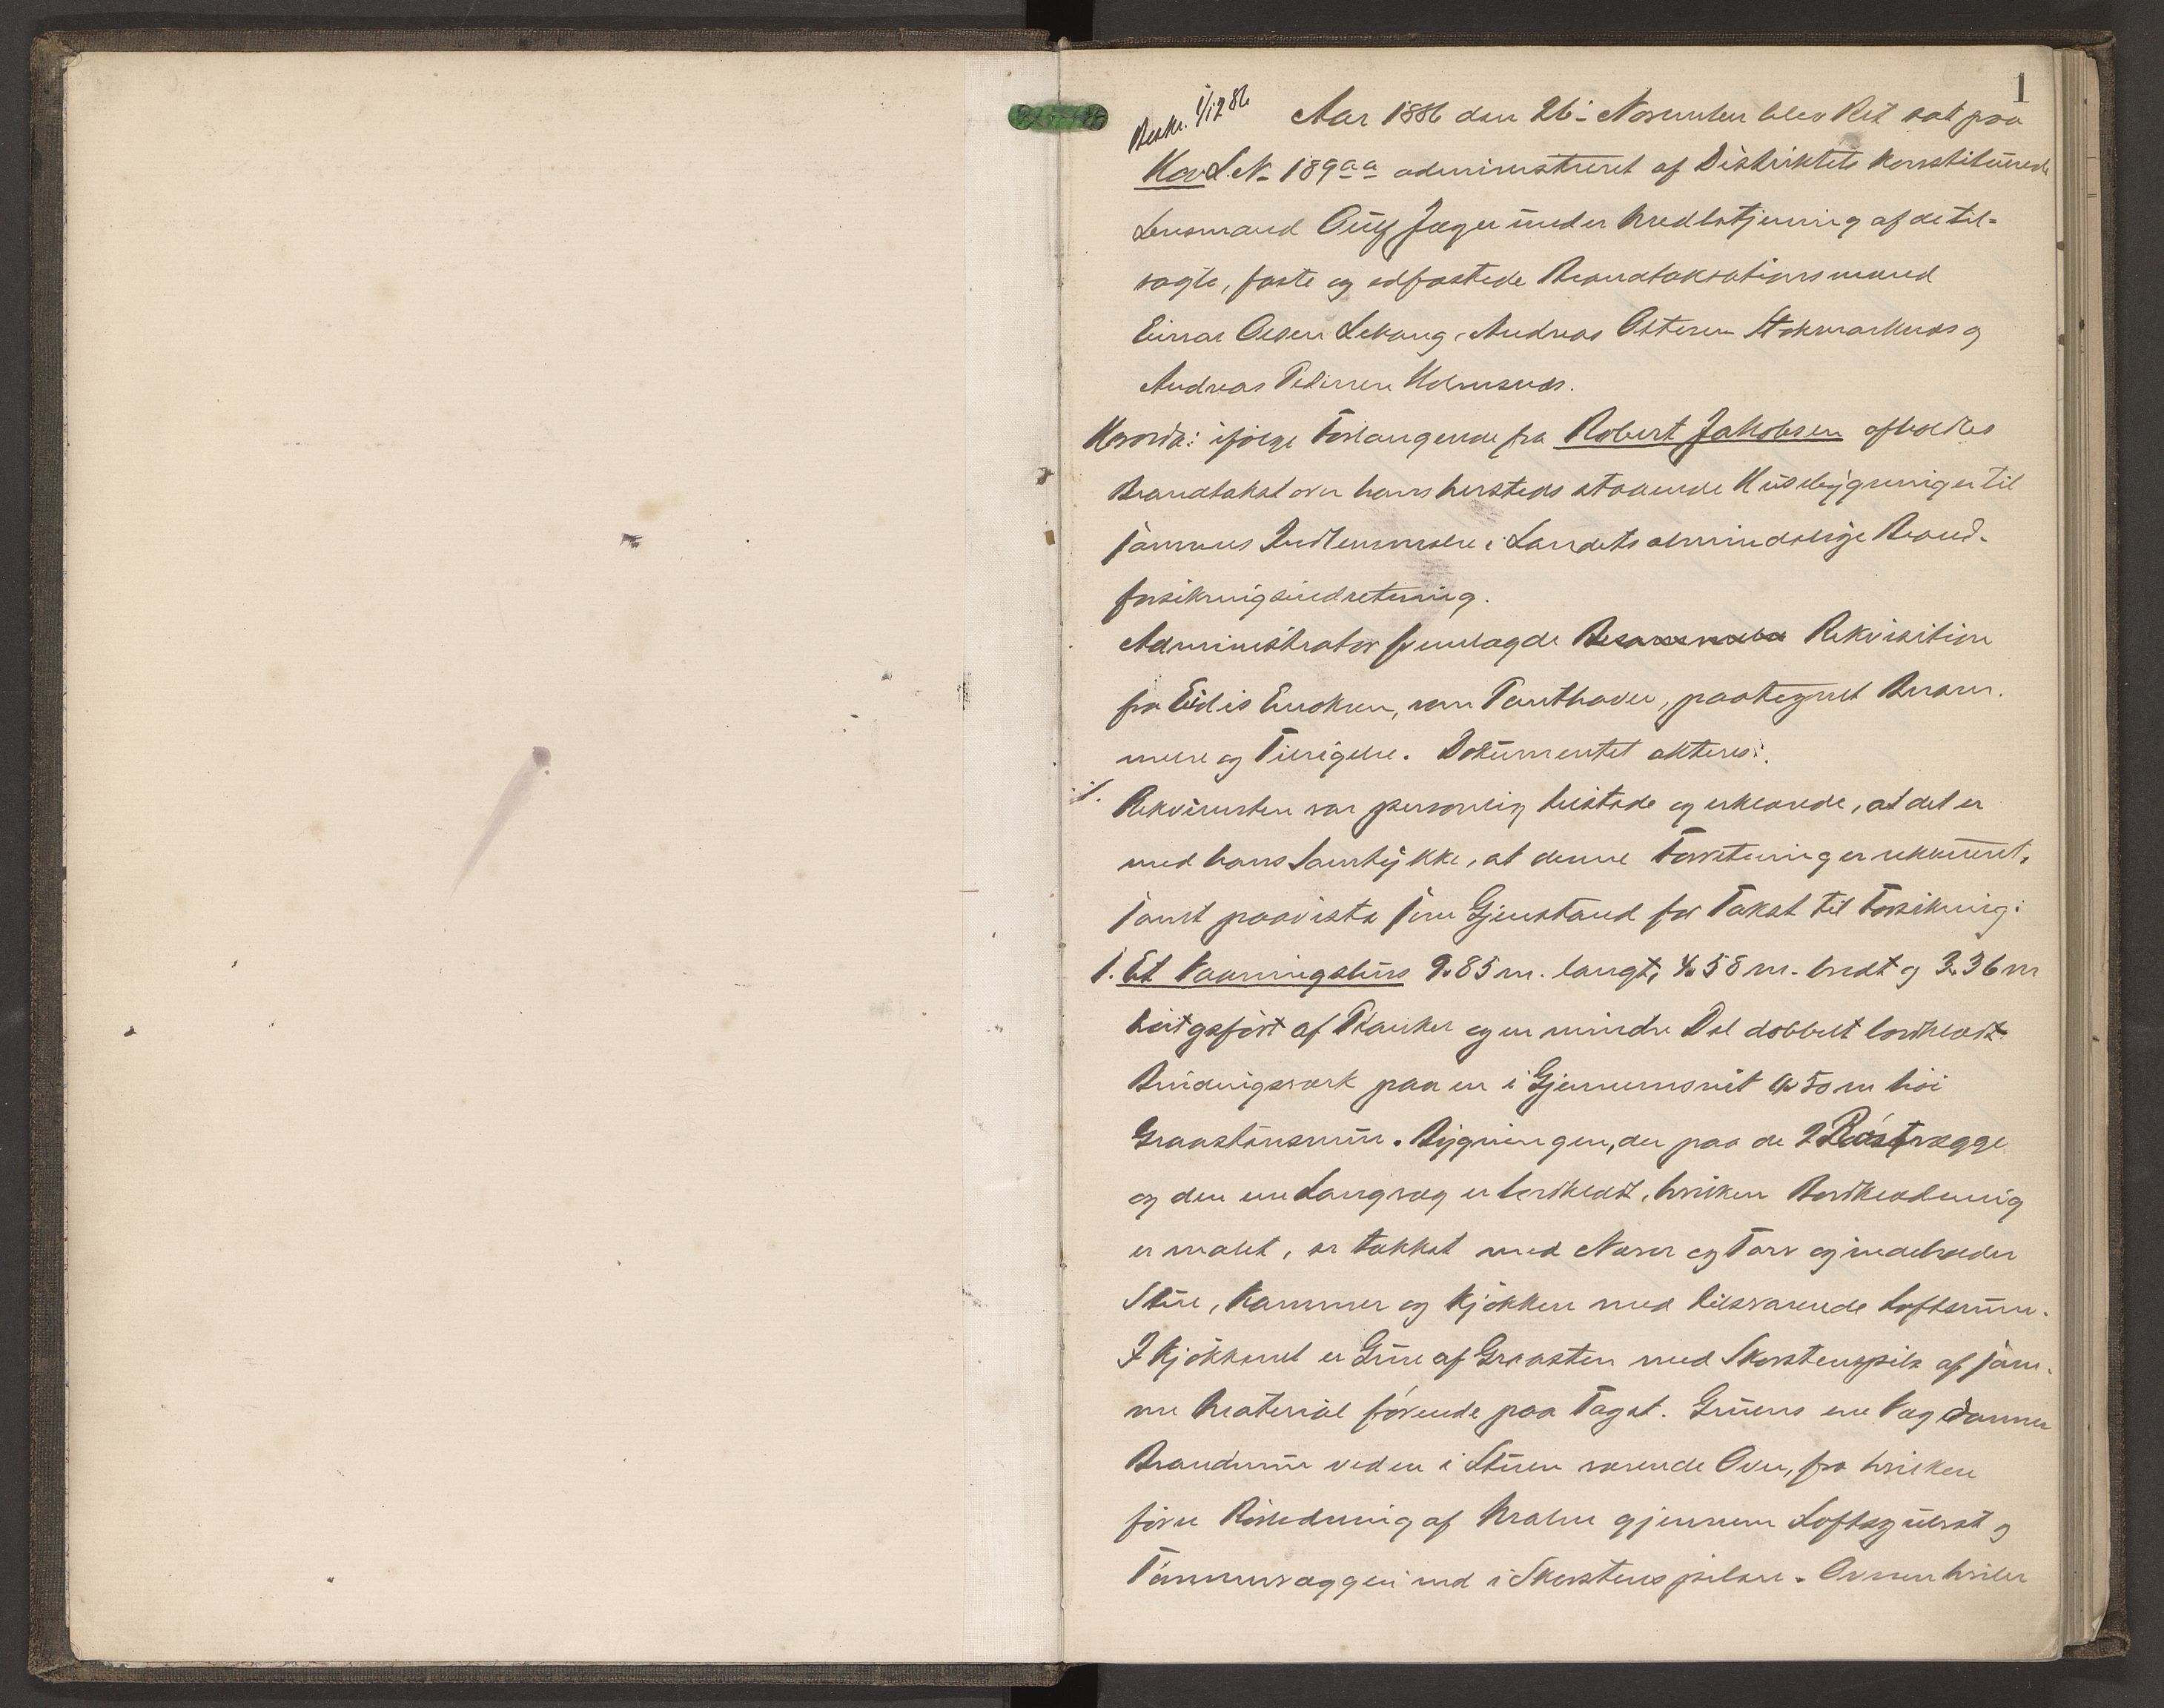 1
Beskr. 1/12 86
Aar 1886 den 26- November blev Ret sat paa
Hov L.N- 189 a.a administreret af Distriktets konstituerede
Lensmand Jæger under Medbetjening af de til-
sagte, faste og edfæstede Brandtaksationsmænd
Einar Olsen Lekang, Andreas Ottesen Stokmarknes og
Andreas Pedersen Holmsnes.
Hvorda: ifølge Forlangende fra Robert Jakobsen afholdes
Brandtakst over hans hersteds staaende Husbygninger til
sammes Indlemmelse i Landets almindelige Brand-
forsikringsindretning.
Administrator fremlagde Rekvisition
fra Edis Enoksen, som Panthaver, paategnet Beram-
melse og Tilsigelse. Dokumentet akteres:
·/. Rekvirenten var personlig tilstede og erklærede, at det er
med hans Samtykke, at denne Forretning er rekvireret,
samt paaviste som Gjenstand for Takst til Forsikring:
1. Et Vaaningshus 9.85 m. langt, 4.58 m. bredt og 3.36 m
høit opført af Planker og en mindre Del dobbelt bordklædt
Bindingsværk paa en i Gjennemsnit 0.50 m høi
Graastensmur. Bygningen, der paa de 2 Røstvægge
og den ene Langvæg er bordklædt, hvilken Bordklædning
er malet, er takket med Næver og Torv og indeholder
Stue, Kammer og Kjøkken med tilsvarende Loftsrum.
I Kjøkkenet er Grue af Graasten med Skorstenspibe af sam-
me Material førende paa Taget. Gruens ene Væg danner
Brandmur ved en i Stuen værende Ovn, fra hvilken
fører Rørledning af Malm gjennem Loftsgulvet og
Tømmervæggen ind i Skorstenspiben. Ovnen hviler